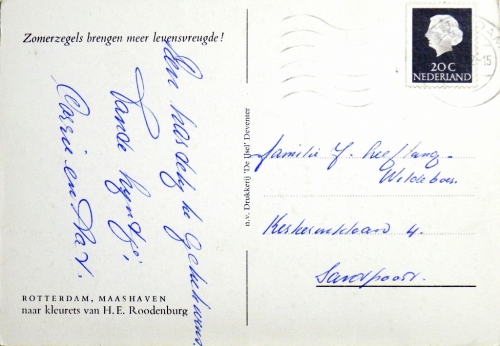 Zomerzegels brengen meer levensvreugde!
Een hartelijke
van de
Corrie en
ROTTERDAM, MAASHAVEN
naar kleurets van H. E. Roodenburg
n.v. Drukkerij 'De IJsel' Deventer
20 C
NEDERLAND
familie J. Leeflang-
Wildeboer.
4.
Santpoort.